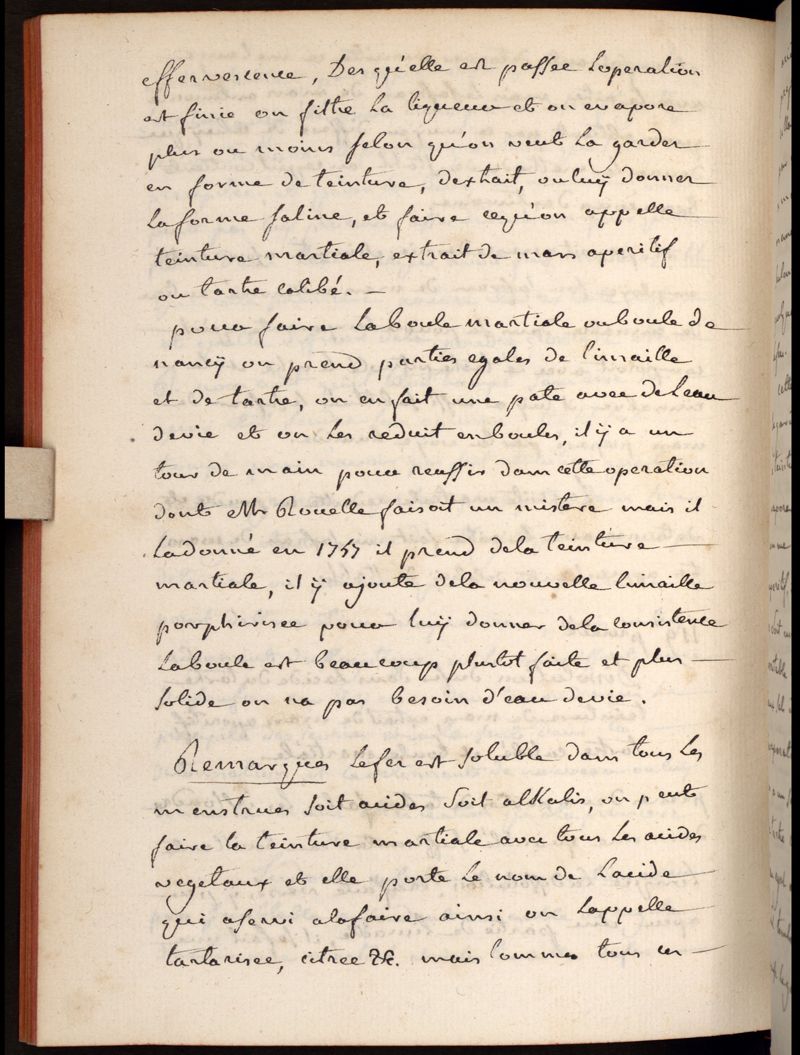 effervescence, Des qu'elle est passee Loperation
est finie on filtre La liqueur et on evapore
plus ou moins selon qu'on veut La garder
en forme de teinture, dextrait, ou luÿ donner
La forme saline, et faire cequ'on appelle
teinture martiale, extrait de mars aperitif
ou tartre calibé. —
pour faire Laboule martiale ouboule de
nancÿ on prend parties egales de limaille
et de tartre, on en fait une pate avec de Leau
devie et on Les reduit enboules, il ÿ a un
tour de main pour reussir dans cette operation
dont Mr Rouelle faisoit un mistere mais il
Ladonné en 1757 il prend dela teinture —
martiale, il ÿ ajoute dela nouvelle limaille
porphirisee pour luÿ donner dela consistence
Laboule est beaucoup plutot faite et plus —
Solide on na pas besoin d'eau devie.
Remarques Lefer est Soluble dans tous Les
menstrues Soit acides Soit alKalis, on peut
faire la teinture martiale avec tous Les acides
vegetaux et elle porte Le nom de Lacide
qui aservi alafaire ainsi on Lappelle
tartarisee, citree &c. mais comme tous ces —